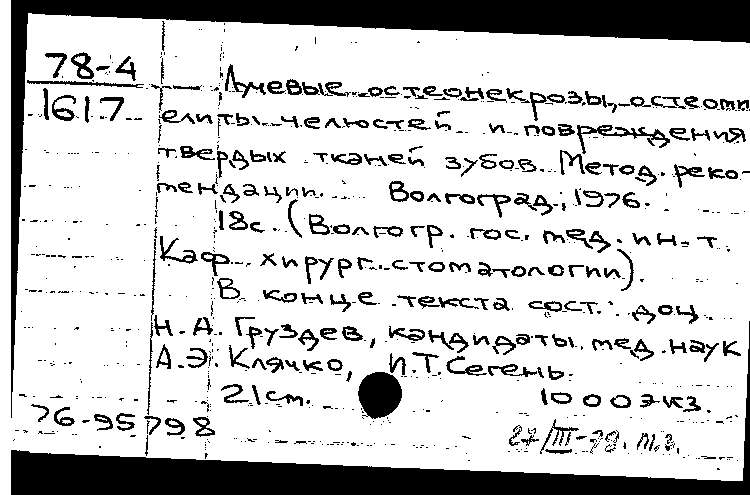 78-4
1617
Лучевые остеонекрозы, остеоми
елиты челюстей и повреждения
твердых тканей зубов. Метод. реко-
мендации. Волгоград, 1976.
18с. (Волгогр. гос. мед. ин-т.
Каф. хирург. стоматологии).
В конце текста сост.: доц.
Н. А. Груздев, кандидаты мед. наук
А.Э. Клячко, И.Т. Сегень.
21см. 1000экз.
76-95798
27/III-79. т.г.